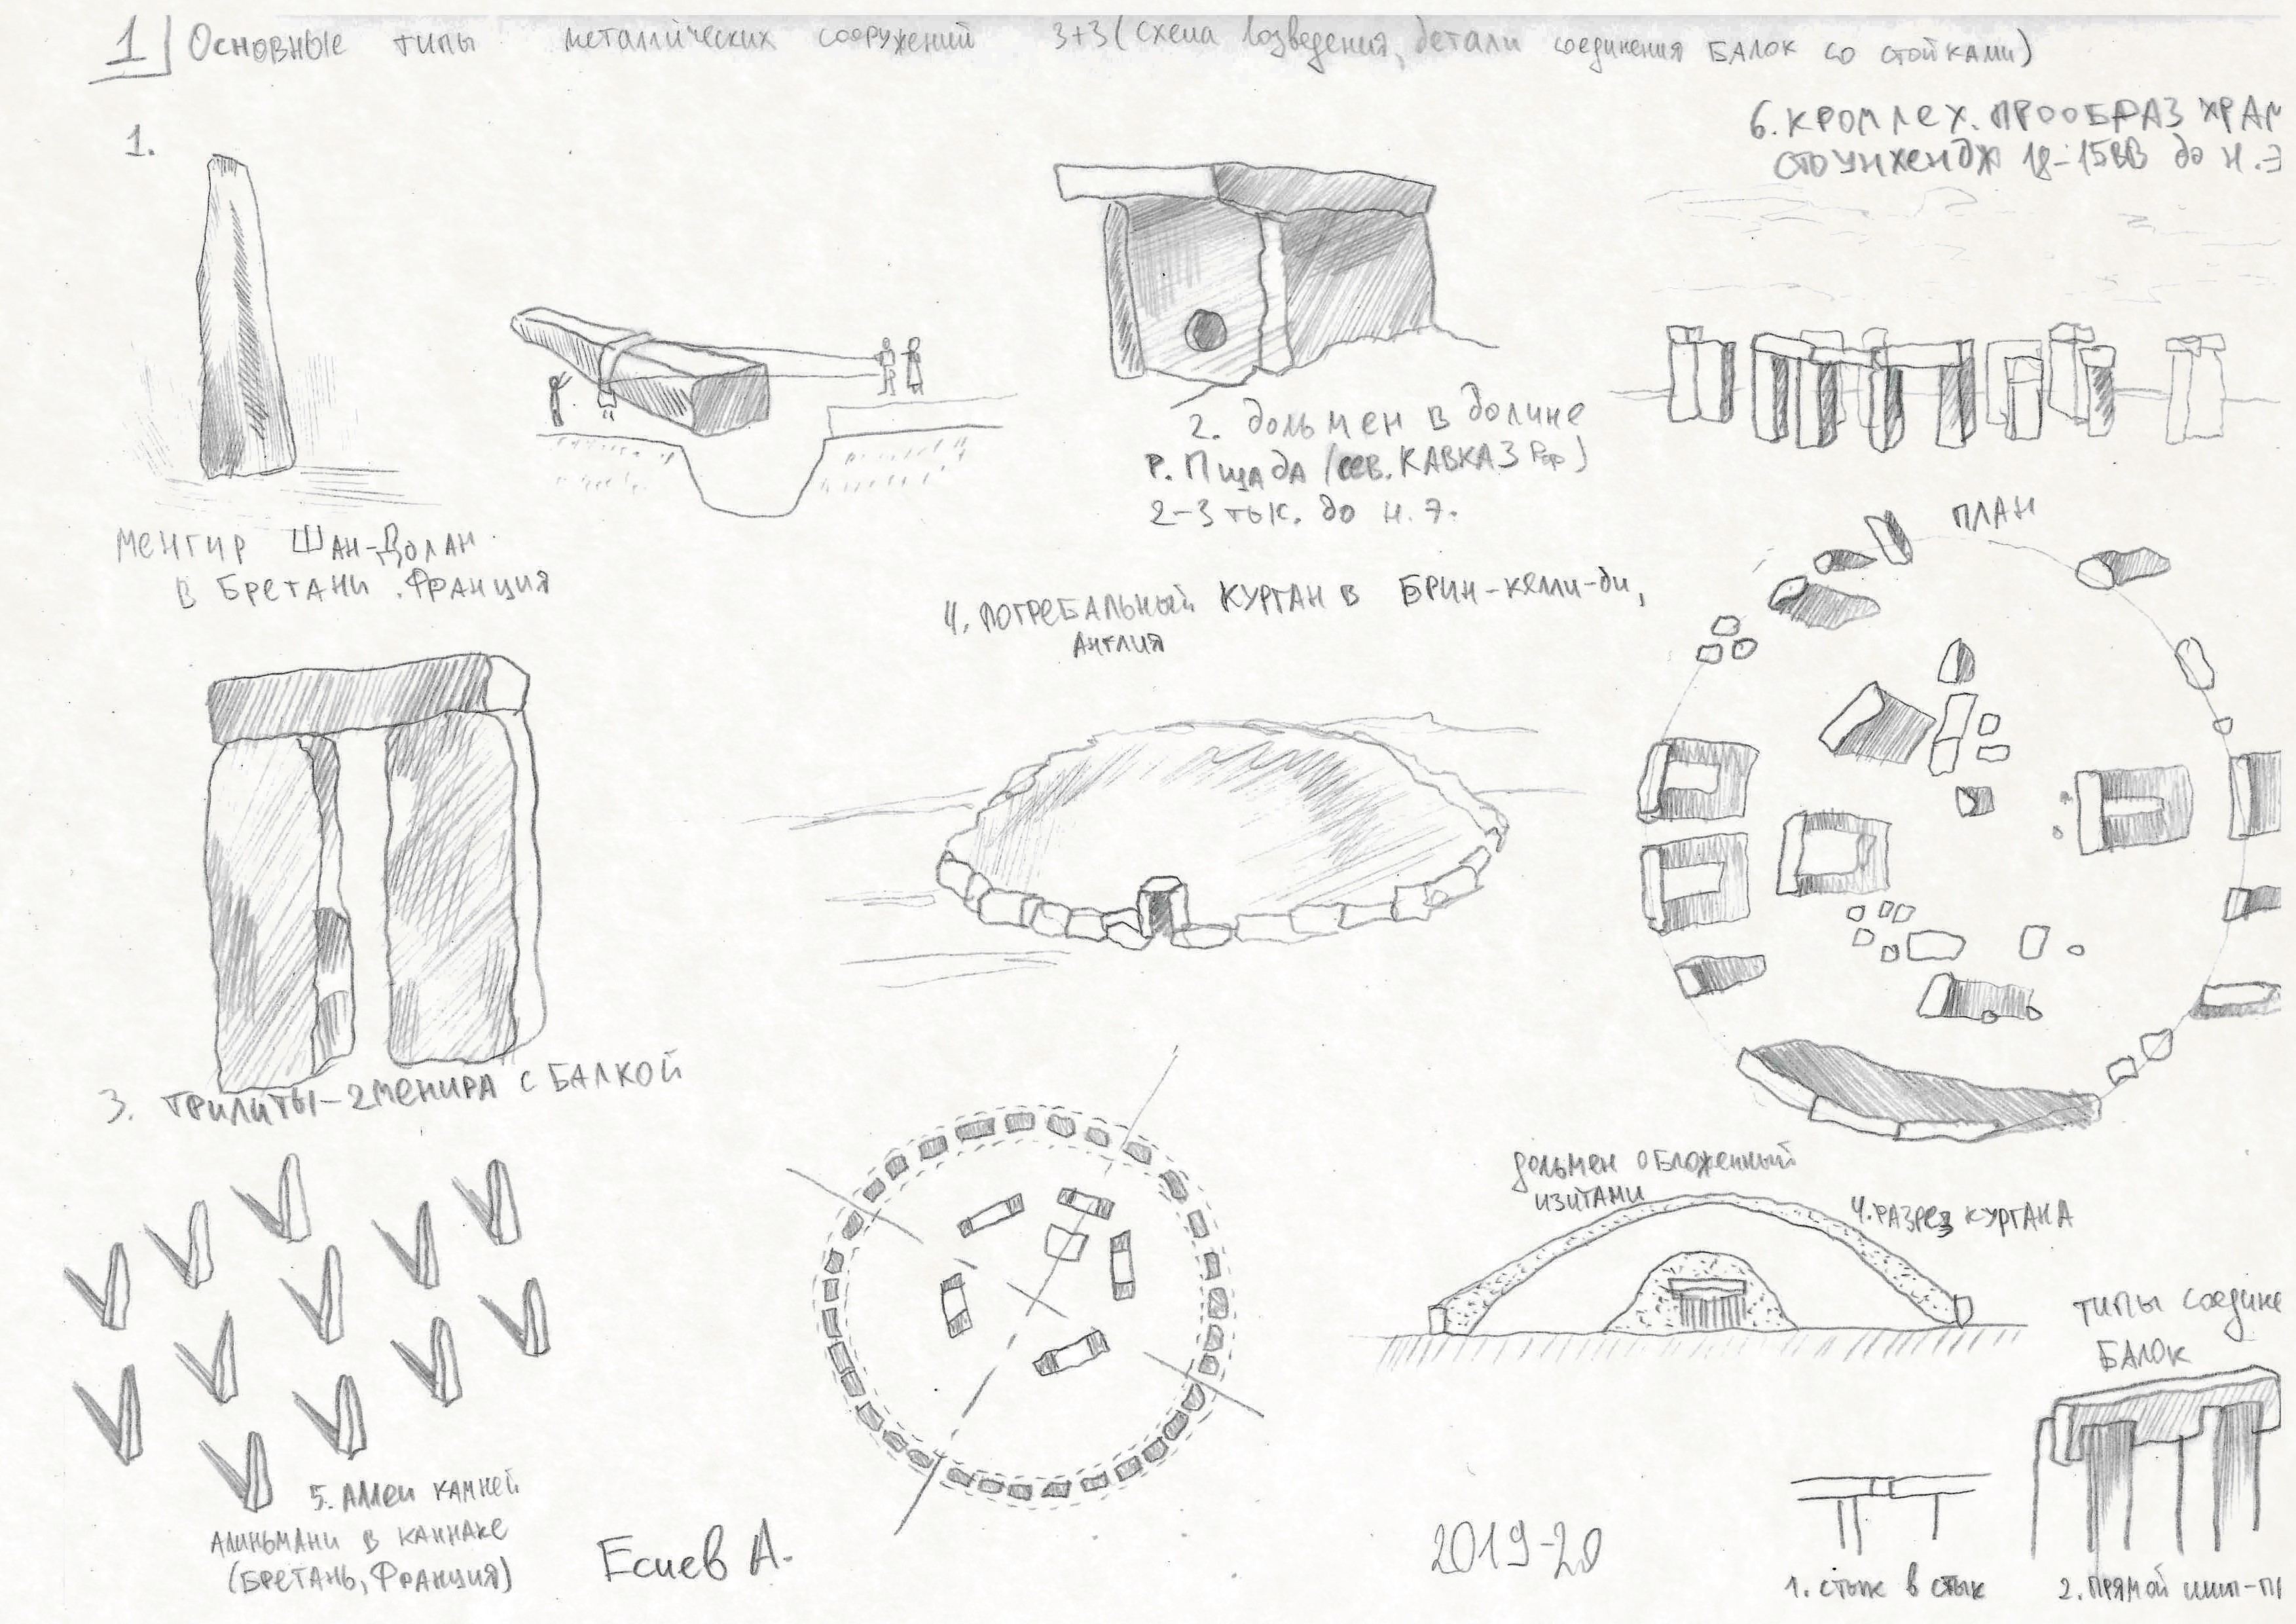 1 Основные типы металлических сооружений 3+3 (схема возведения, детали соединения БАЛОК со стойками)
1.
Менгир Шан-Долан
в Бретани. Франция
2. дольмен в долине
р. Пшада (сев. КАВКАЗ
2-3 тыс. до н.э.
6. КРОМЛЕХ. ПРООБРАЗ ХРАМ
СТОУНХЕНДЖ 18-15ВВ до н.э
ПЛАН
4. ПОГРЕБАЛЬНЫЙ КУРГАН В БРИН-келли-ди,
Англия
3. ТРИЛИТЫ-2 МЕНИРА С БАЛКОЙ
дольмен обложенный
4. РАЗРЕЗ КУРГАНА
типы соедине
БАЛОК
5. Аллеи камней
Алиньмани в Каннаке
(Бретань, Франция)
Есиев А.
2019-20
1. стык в стык
2. ПРЯМОЙ шип-п